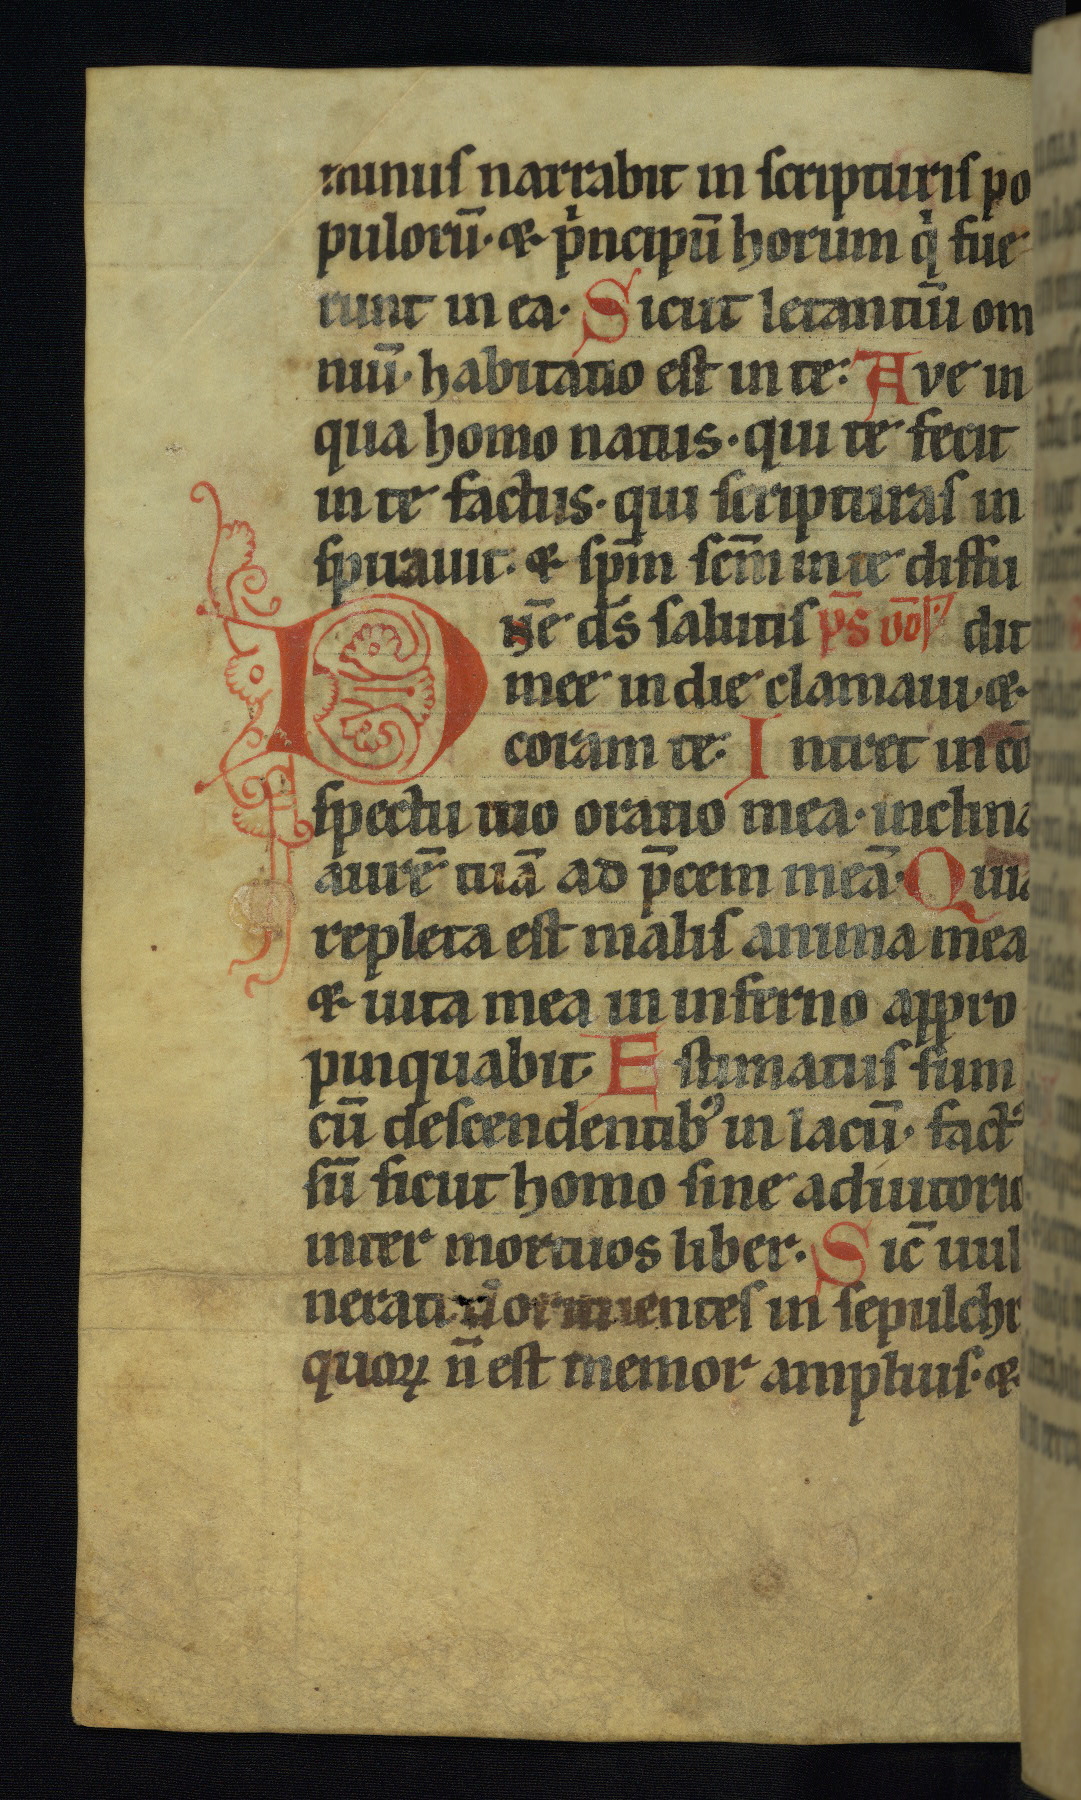 minus narrabit in scripturis po
pulorū· & pͥncipū horum qͥ fue
runt in ea· Sicut letantiū om
niū· habitatio est in te· Ave in
qua homo natus· qui te fecit
in te factus· qui scripturas in
spirauit· & spm̄ scm̄ in te diffu
Dn̄e ds̄ salutis p̄s vōs dit
mee in die clamaui· &
coram te· Intret in cō
spectu tuo oratio mea· inclina
aurē tuā ad p̄cem meā· Quia
repleta est malis anima mea
& uita mea in inferno appro
pinquabit· Estimatus sum
cū descendentibꝰ in lacū· factꝰ
sū sicut homo sine adiutorio
inter mortuos liber· Sic̄ uul
nerati dormientes in sepulchr
quoꝝ n̄ est memor amplius· &